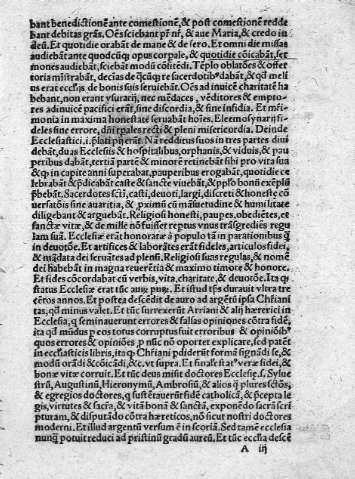 bant benedictionẽ ante comestionẽ, & post comestionẽ redde
bant debitas grãs. Oẽs sciebant pr̃ nr̃, & aue Maria, & credo in
deũ. Et quotidie orabãt de mane & de sero. Et omni die missas
audiebãt ante quodcũq; opus corpale, & quotidie cõicabãt, ser
mones audiebãt, sciebãt modũ cõfitẽdi. Tẽplo oblatões & offer
toria mĩstrabãt, decias de q̃cũq; re sacerdotib⁹ dabãt, & qd̃ meli
us erat ecclĩs de bonis suis seruiebãt. Oẽs ad inuicẽ charitatẽ ha
bebant, non erant vsurarij, nec mẽdaces, vẽditores & empto-
res adinuicẽ pacifici erãt, sine discordia, & sine insidia. Et mr̃i-
monia in maxima honestate seruabãt hoĩes. Eleemosynarij fi-
deles sine errore, dñi tp̃ales recti & pleni misericordia. Deinde
Ecclesiastici .i. p̃lati pij erãt. Nã redditus suos in tres partes diui
debãt, duas Ecclesiis & hospitalibus, orphanis, & viduis, & pau
peribus dabãt, tertiã partẽ & minorẽ retinebãt sibi pro vita sua
& qp̃ in capite anni superabat, pauperibus erogabãt, quotidie ce
lebrabãt & p̃dicabãt caste & sancte viuebãt, & pp̃lo bonũ exẽplũ
p̃bebãt. Sacerdotes sctĩ, casti, deuoti, largi, discreti & honeste cõ
uersatõis sine auaritia, & p̃ximũ cũ mãsuetudine & humilitate
diligebant & arguebãt. Religiosi honesti, paupes, obediẽtes, et
sanctæ vitæ, & de mille nõ fuisset repertus vnus trãsgrediẽs regu
lam suã. Ecclesiæ erãt honoratæ à populo tã in parationibus q̃
in deuotõe. Et artifices & laborãtes erãt fideles, articulos fidei,
& mãdata dei seruãtes ad plenũ. Religiosi suas regulas, & nomẽ
dei habebãt in magna reuerẽtia & maximo timore & honore.
Et fides cõcordabat cũ verbis, vita, charitate, & deuotõe. Ita q;
status Ecclesiæ erat tũc aureus. Et istud tp̃s durauit vltra tre
cẽtos annos. Et postea descẽdit de auro ad argẽtũ ipsa Chr̃iani
tas, qd̃ minus valet. Et tũc surrexerũt Arriani & alij hæretici in
Ecclesia, q seminauerunt errores & falsas opiniones cõtra fidẽ,
ita qd̃ mũdus p eos totus corruptus fuit erroribus & opiniõib⁹
quos errores & opiniões, p nũc nõ oportet explicare, sed patẽt
in ecclesiasticis libris, ita q; Chr̃iani pdiderũt formã signãdi se, &
modũ orãdi & cõicãdi, &c. vt supra. Et finalẽ stat⁹ veræ fidei, &
bonæ vitæ corruit. Et tũc deus misit doctores Ecclesiæ .s. Sylue
strũ, Augustinũ, Hieronymũ, Ambrosiũ, & alios q plures sctõs,
& egregios doctores, q sustẽtauerũt fidẽ catholicã, & p̃cepta le
gis, virtutes & sacr̃a, & vitã bonã & sanctã, exponẽdo sacrã scri
pturam, & disputãdo cõtra hæreticos, nõ sicut nostri doctores
moderni. Et illud argentũ versum ẽ in scoriã. Sed tamẽ ecclesia
nunq̃ potuit reduci ad pristinũ gradũ aureũ. Et tũc ecclĩa descẽ
A iij